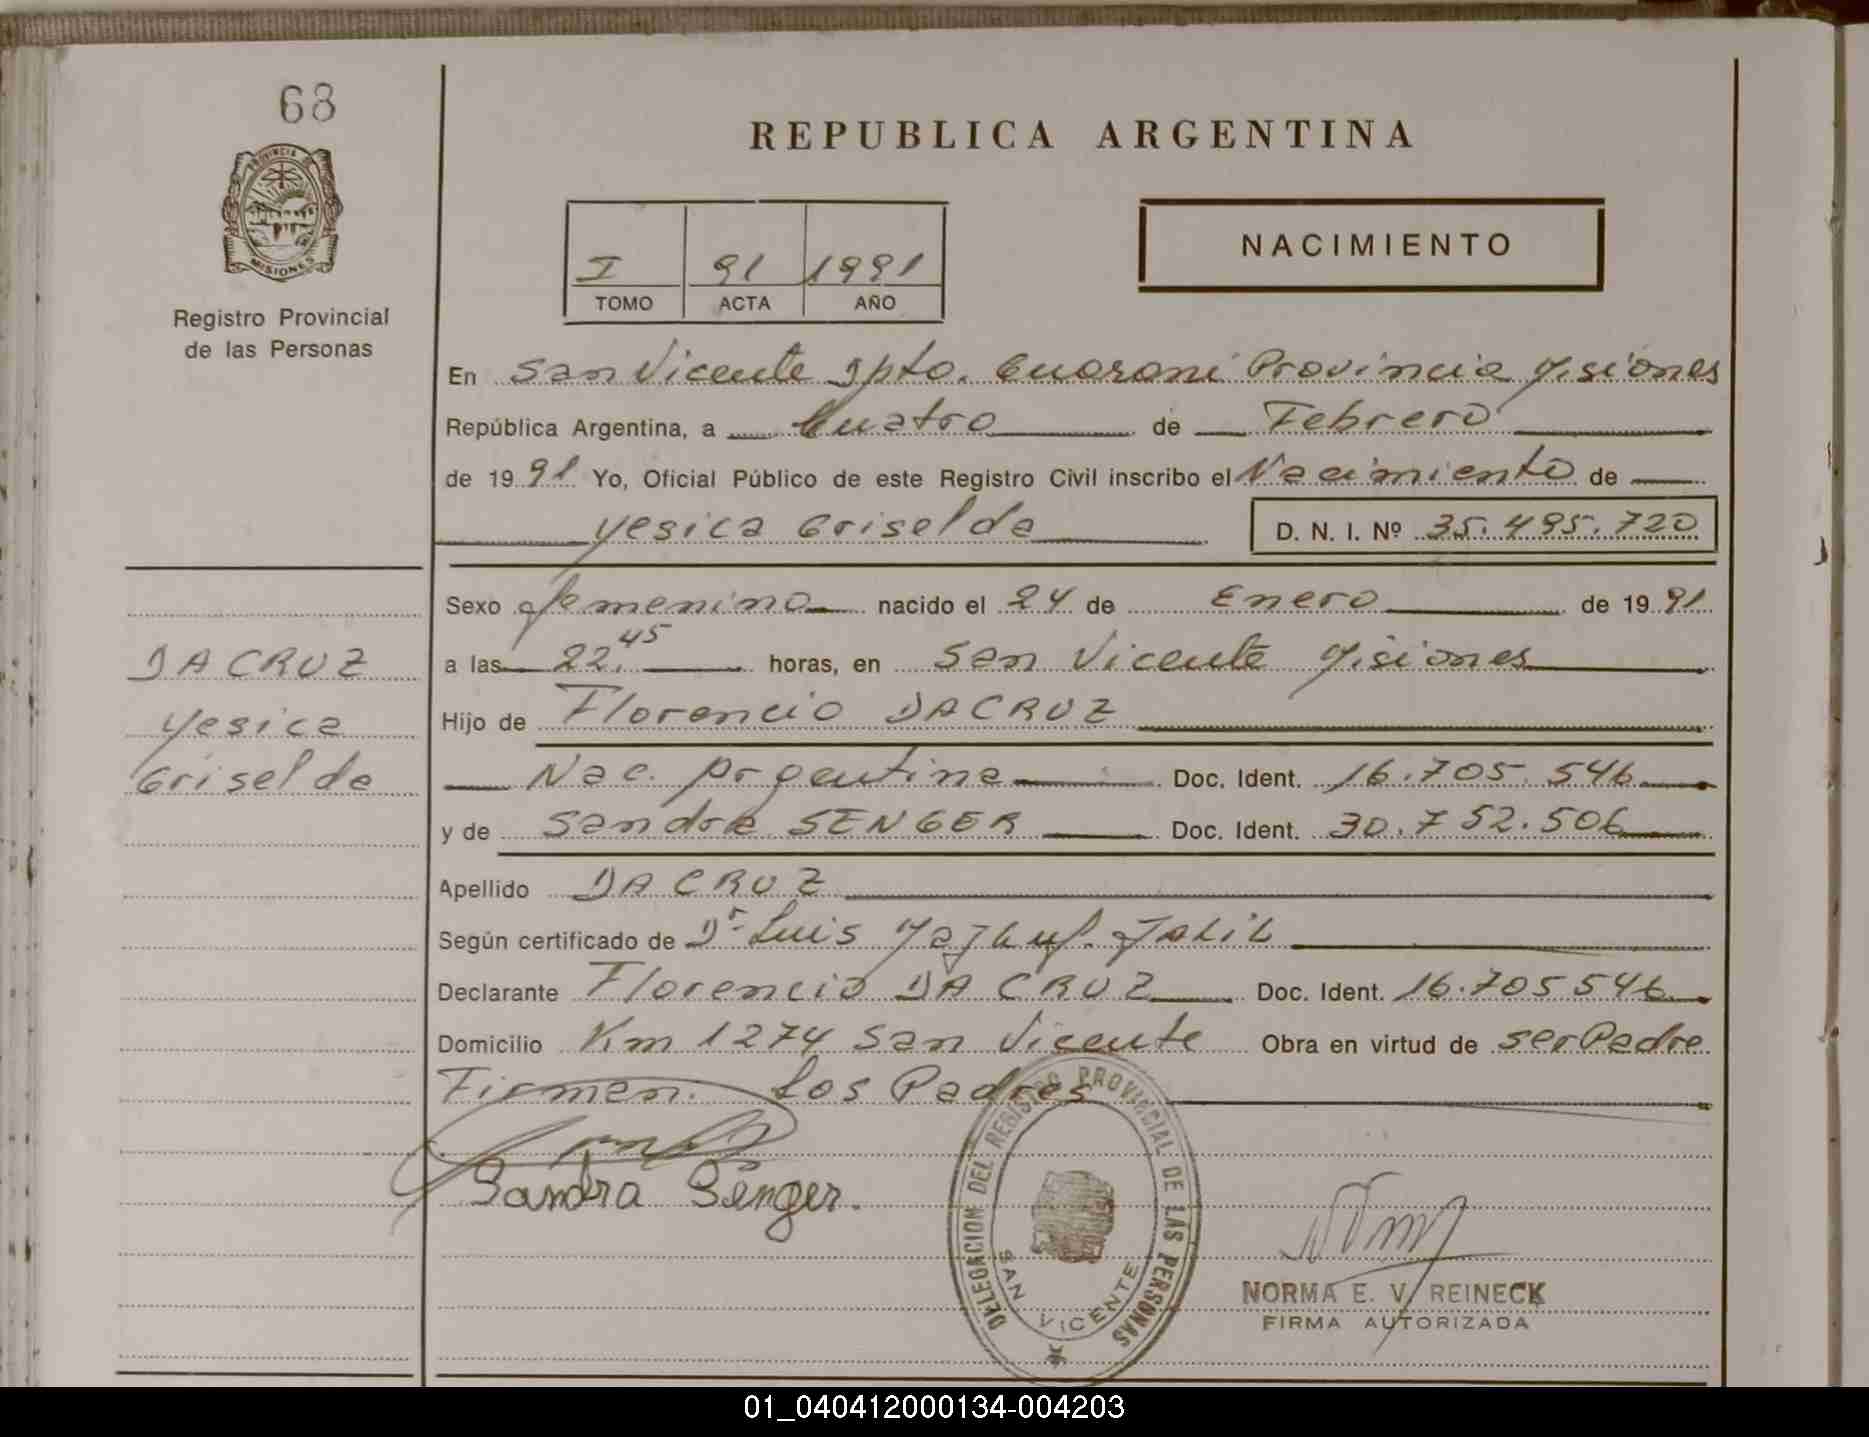 68
PROVINCIA DE
MISIONES
Registro Provincial
de las Personas
REPUBLICA ARGENTINA
I 91 1991
TOMO ACTA AÑO
NACIMIENTO
En San Vicente Dpto. Guarani Provincia Misiones
República Argentina, a Cuatro de Febrero
de 1991 Yo, Oficial Público de este Registro Civil inscribo el Nacimiento de
Yesica Griselda D. N. I. Nº 35.495.720
Sexo femenino nacido el 24 de Enero de 1991
a las 22.45 horas, en San Vicente Misiones
Hijo de Florencio DA CRUZ
Nac. Argentina Doc. Ident. 16.705.546
y de Sandra SENGER Doc. Ident. 30.752.506
Apellido DA CRUZ
Según certificado de Dr Luis
Declarante Florencio DA CRUZ Doc. Ident. 16.705546
Domicilio Km 1274 San Vicente Obra en virtud de ser Padre
Firman. Los Padres
Sandra Senger.
DA CRUZ
Yesica
Griselda
DELEGACION DEL REGISTRO PROVINCIAL DE LAS PERSONAS
SAN VICENTE
NORMA E. V. REINECK
FIRMA AUTORIZADA
01_040412000134-004203